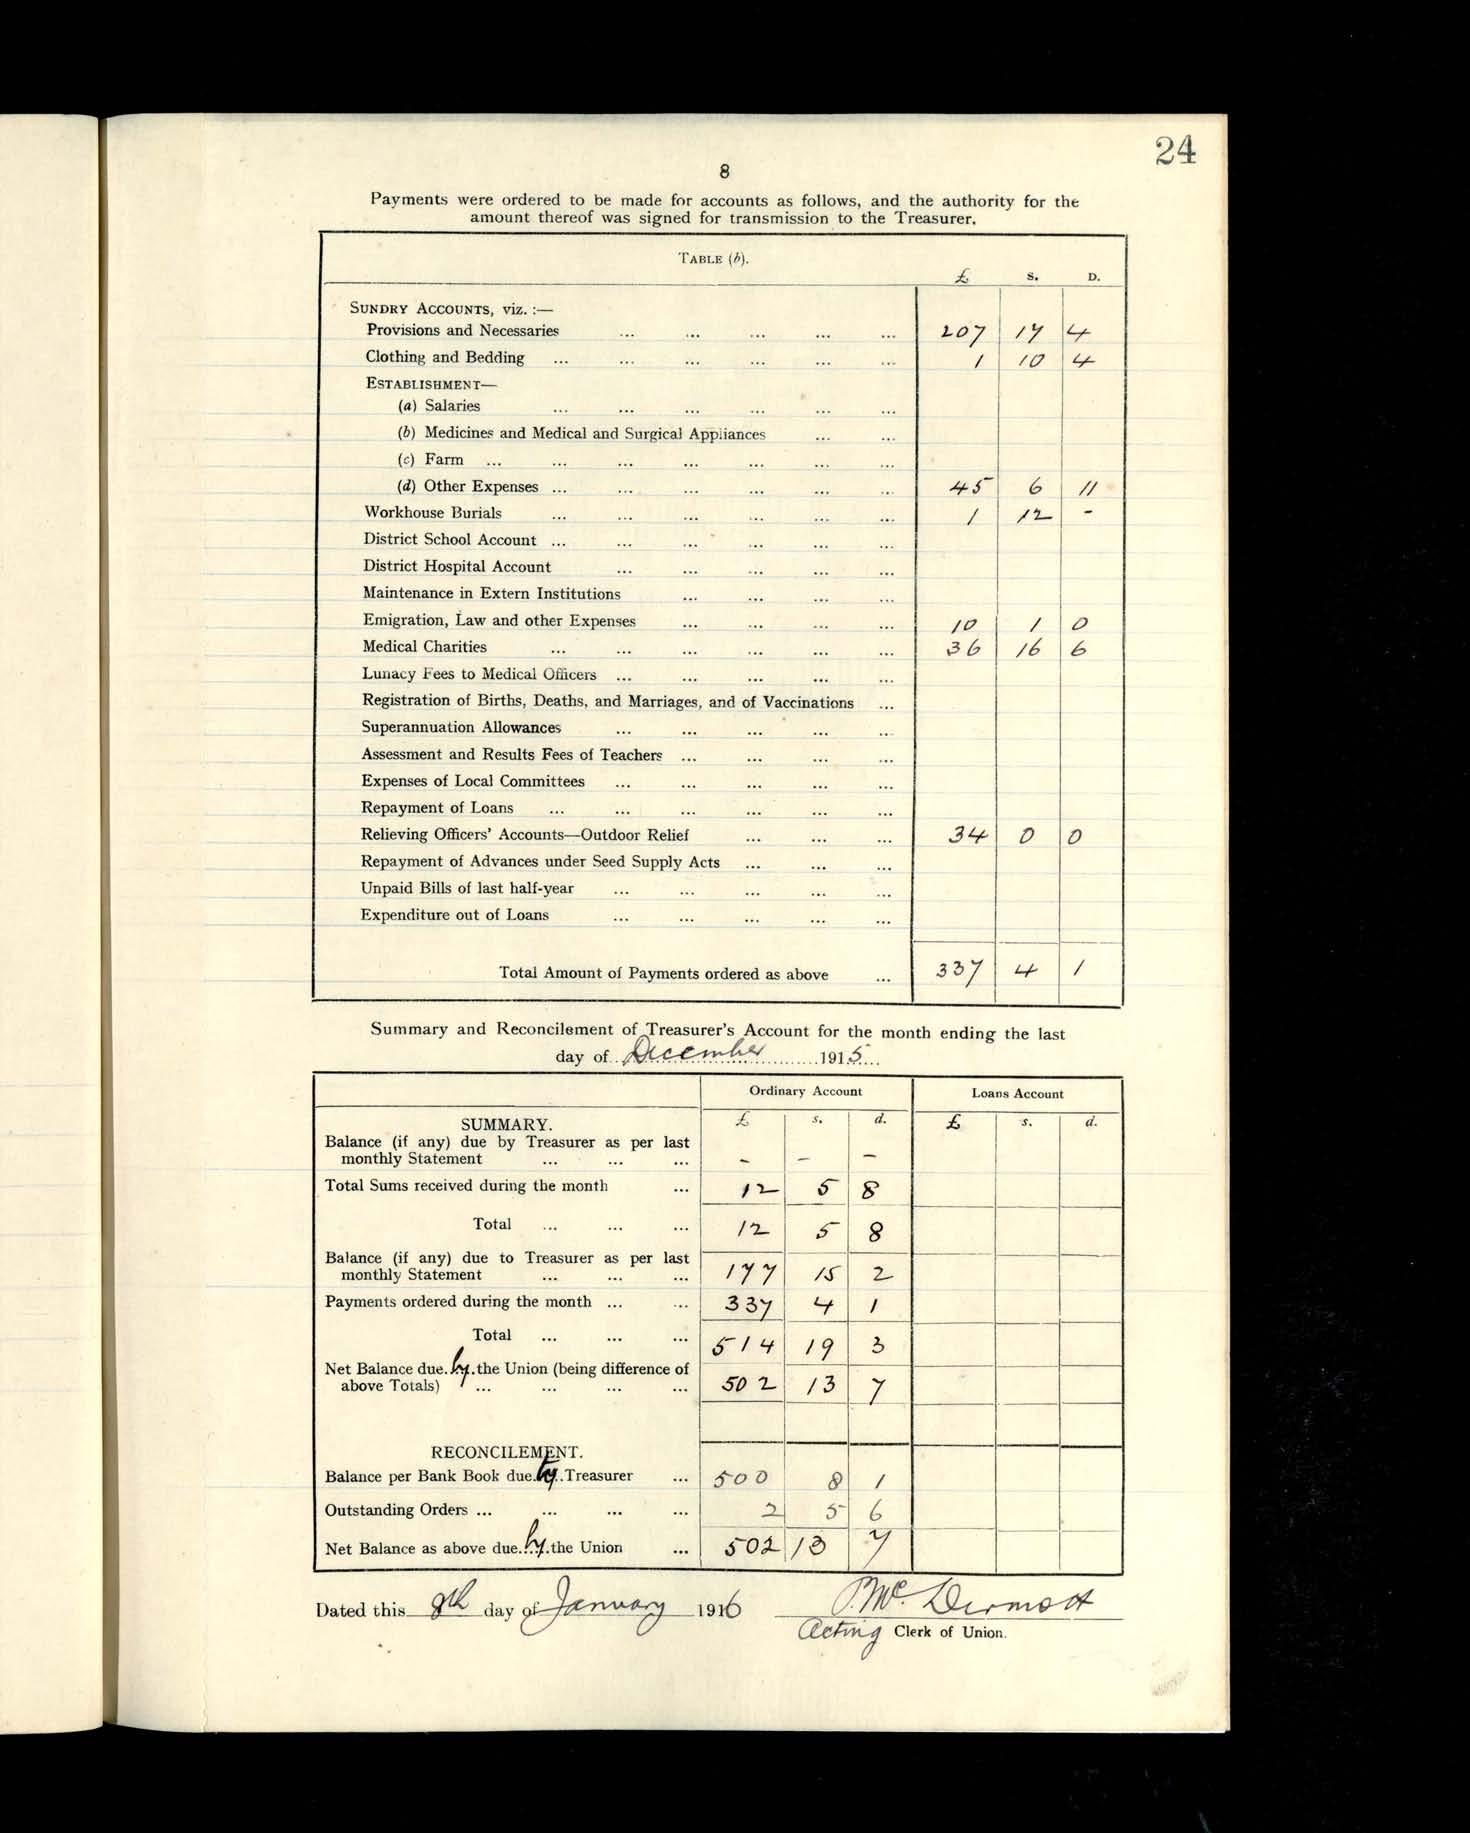 24
8
Payments were ordered to be made for accounts as follows, and the authority for the
amount thereof was signed for transmission to the Treasurer.
TABLE (b).
£ s. D.
SUNDRY ACCOUNTS, viz. :—
Provisions and Necessaries ... ... ... ... ... 207 17 4
Clothing and Bedding ... ... ... ... ... ... 1 10 4
ESTABLISHMENT—
(a) Salaries ... ... ... ... ... ...
(b) Medicines and Medical and Surgical Appliances ... ...
(c) Farm ... ... ... ... ... ... ...
(d) Other Expenses ... ... ... ... ... ... 45 6 11
Workhouse Burials ... ... ... ... ... ... 1 12 -
District School Account ... ... ... ... ... ...
District Hospital Account ... ... ... ... ...
Maintenance in Extern Institutions ... ... ... ...
Emigration, Law and other Expenses ... ... ... ... 10 1 0
Medical Charities ... ... ... ... ... ... 36 16 6
Lunacy Fees to Medical Officers ... ... ... ... ...
Registration of Births, Deaths, and Marriages, and of Vaccinations ...
Superannuation Allowances ... ... ... ... ...
Assessment and Results Fees of Teachers ... ... ... ...
Expenses of Local Committees ... ... ... ... ...
Repayment of Loans ... ... ... ... ... ...
Relieving Officers' Accounts—Outdoor Relief ... ... ... 34 0 0
Repayment of Advances under Seed Supply Acts ... ... ...
Unpaid Bills of last half-year ... ... ... ... ...
Expenditure out of Loans ... ... ... ... ...
Total Amount of Payments ordered as above ... 337 4 1
Summary and Reconcilement of Treasurer's Account for the month ending the last
day of December 1915
Ordinary Account Loans Account
SUMMARY. £ s. d. £ s. d.
Balance (if any) due by Treasurer as per last
monthly Statement ... ... ... - - -
Total Sums received during the month ... 12 5 8
Total ... ... ... 12 5 8
Balance (if any) due to Treasurer as per last
monthly Statement ... ... ... 177 15 2
Payments ordered during the month ... ... 337 4 1
Total ... ... ... 514 19 3
Net Balance due by the Union (being difference of
above Totals) ... ... ... ... 502 13 7
RECONCILEMENT.
Balance per Bank Book due by Treasurer ... 500 8 1
Outstanding Orders ... ... ... ... 2 5 6
Net Balance as above due by the Union ... 502 13 7
Dated this 8th day of January 1916 P. McDermott
Acting Clerk of Union.